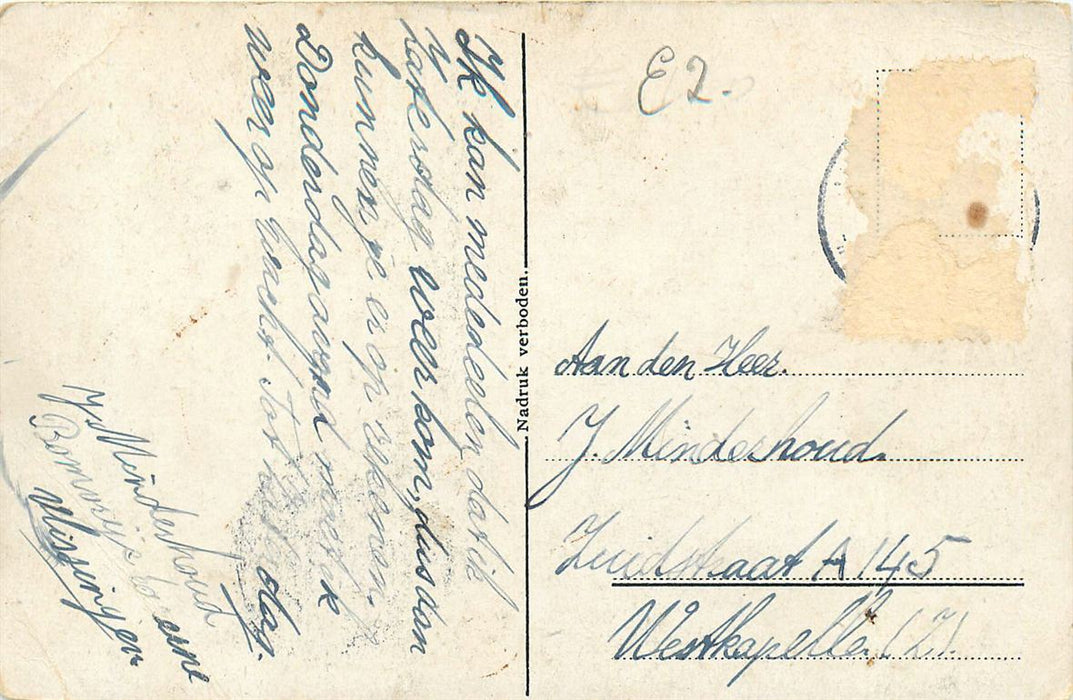 Ik kan mededeelen dat ik
Zaterdag weer kom, dus dan
kunnen je er op rekenen.
Donderdagavond moet ik
weer op wacht. Tot Zaterdag.
J. Minderhoud
Vlissingen
Nadruk verboden.
E2.
Aan den Heer.
J. Minderhoud.
Zuidstraat A 145
Westkapelle. (Z).